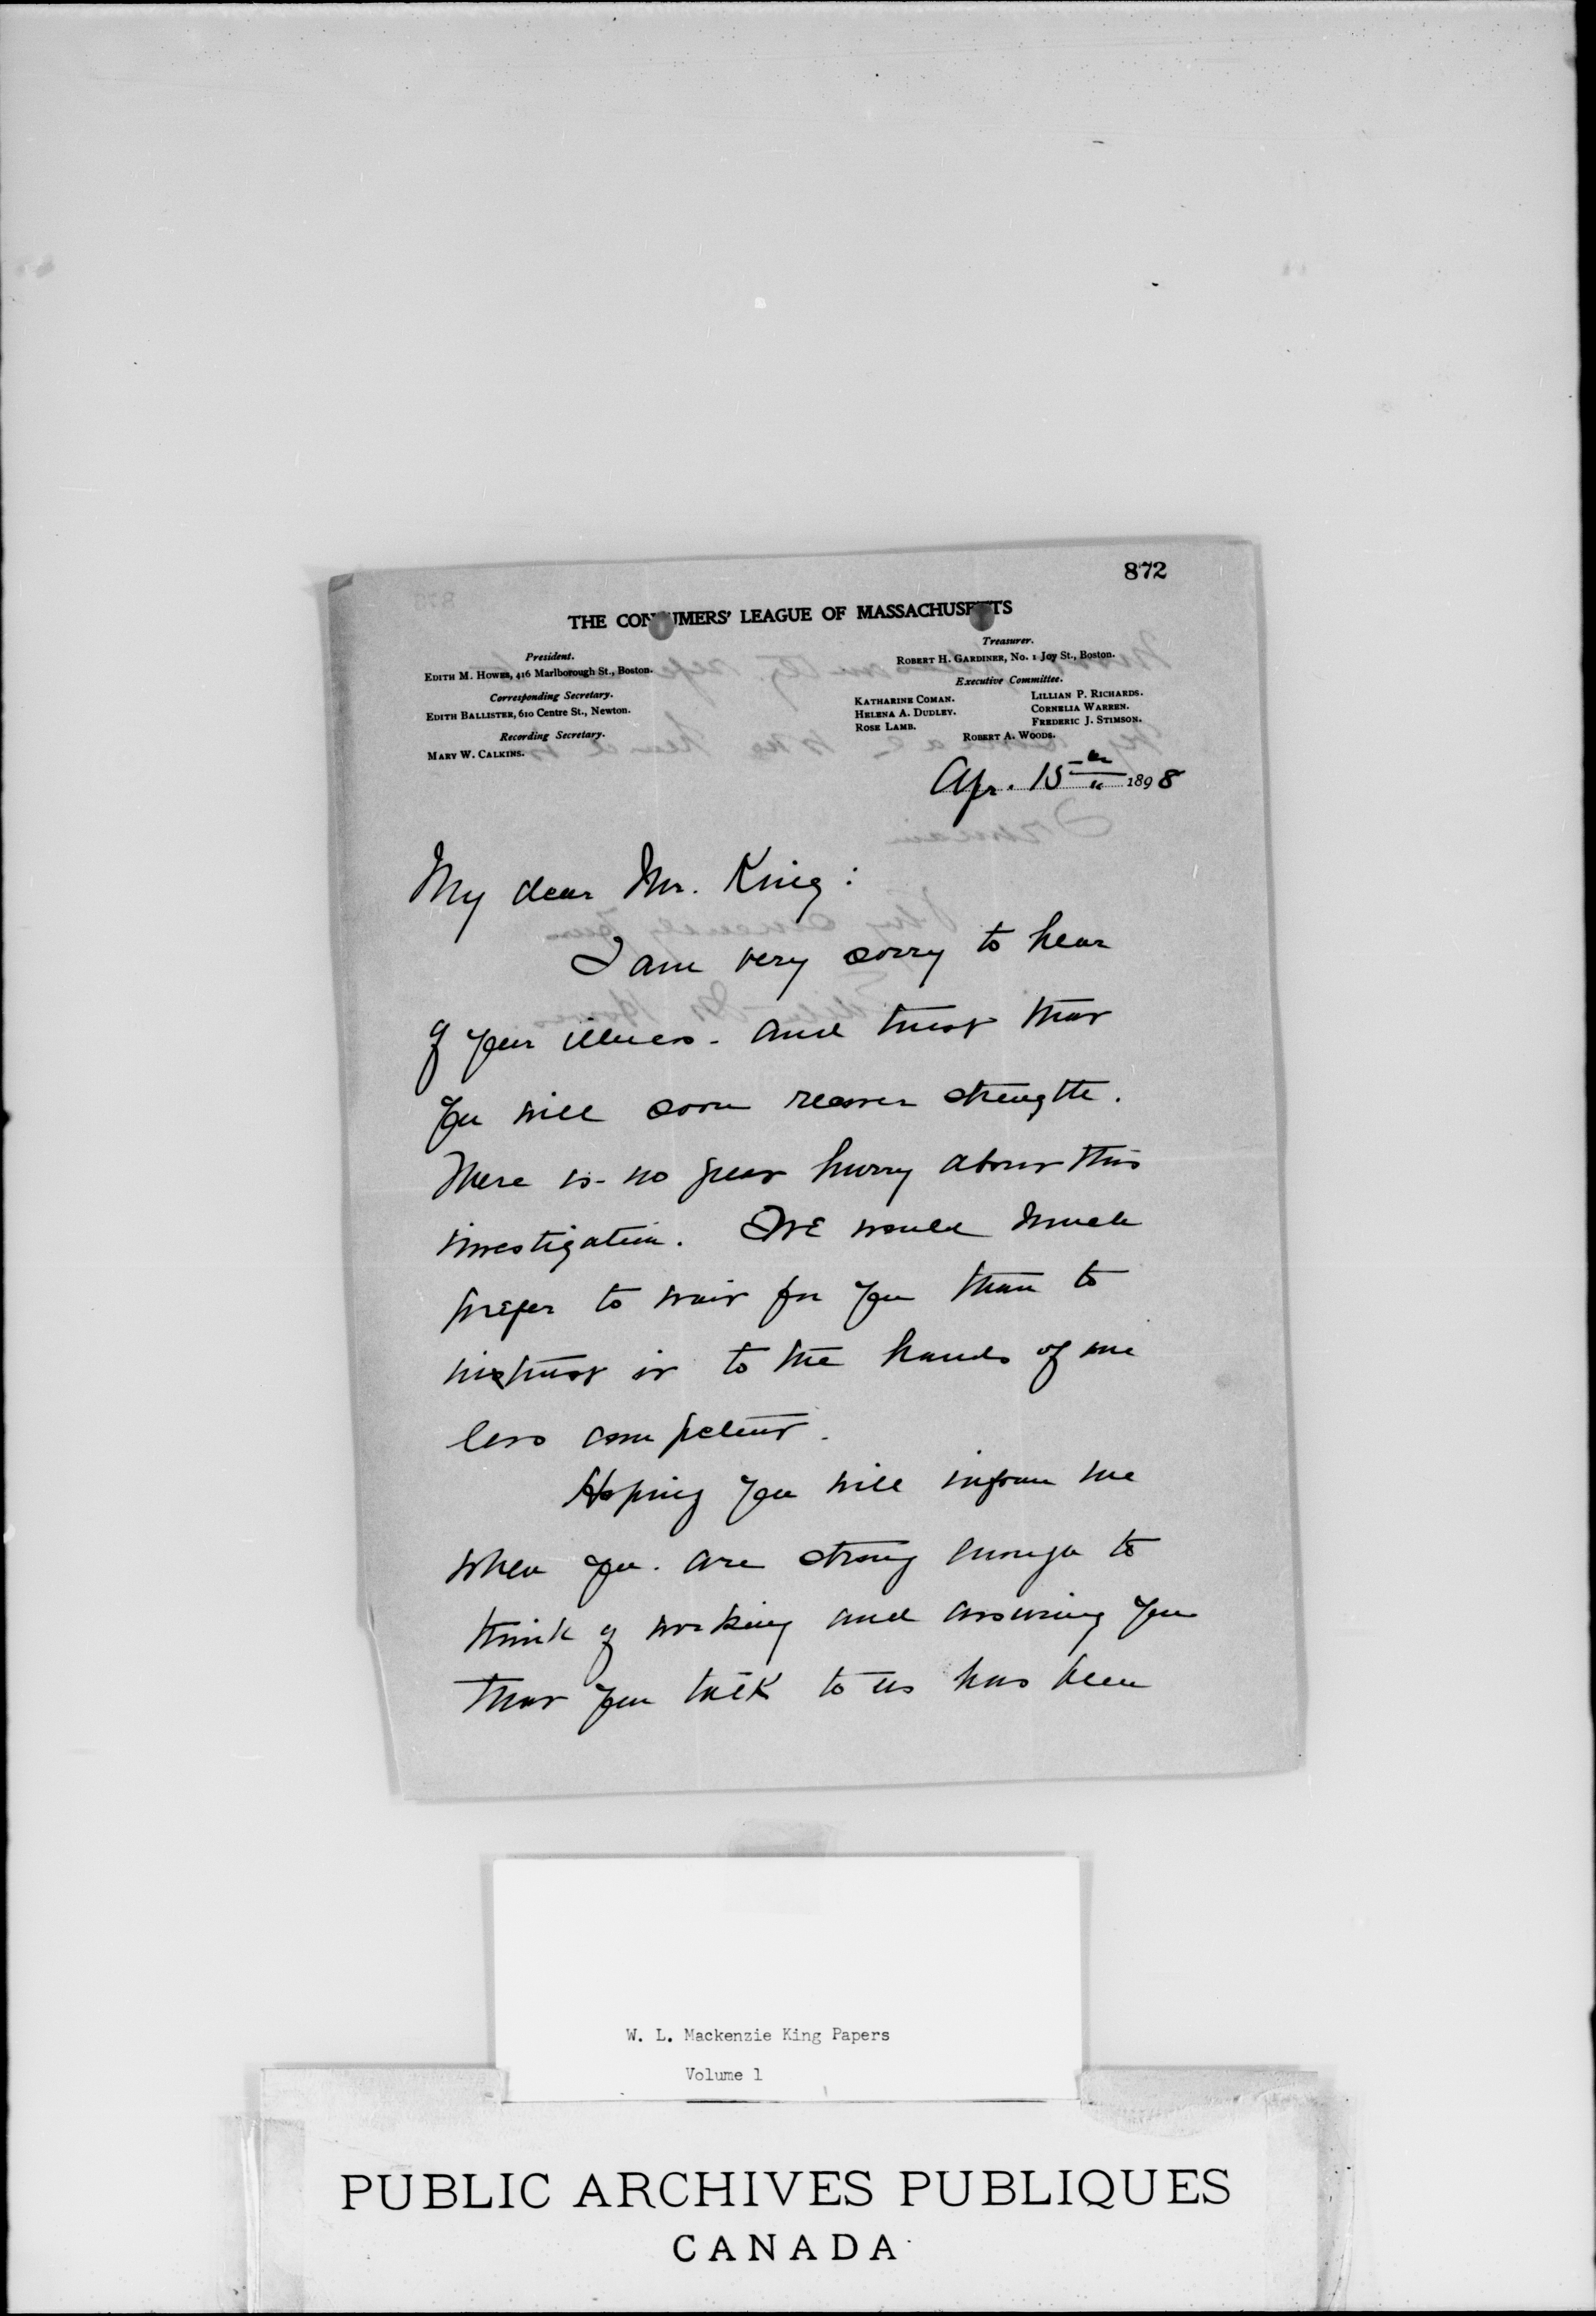 872
THE CONSUMERS' LEAGUE OF MASSACHUSETTS
President.
EDITH M. HOWES, 416 Marlborough St., Boston.
Corresponding Secretary.
EDITH BALLISTER, 610 Centre St., Newton.
Recording Secretary.
MARY W. CALKINS.
Treasurer.
ROBERT H. GARDINER, No. 1 Joy St., Boston.
Executive Committee.
KATHARINE COMAN. LILLIAN P. RICHARDS.
HELENA A. DUDLEY. CORNELIA WARREN.
ROSE LAMB. FREDERIC J. STIMSON.
ROBERT A. WOODS.
Apr. 15th 1898
My dear Mr. King:
I am very sorry to hear
of your illness. and trust that
you will soon recover strength.
There is no great hurry about this
investigation. We would much
prefer to wait for you than to
it to the hands of one
less competent.
Hoping you will inform me
when you are strong enough to
think of working and assuring you
that your talk to us has been
W. L. Mackenzie King Papers
Volume 1
PUBLIC ARCHIVES PUBLIQUES
CANADA